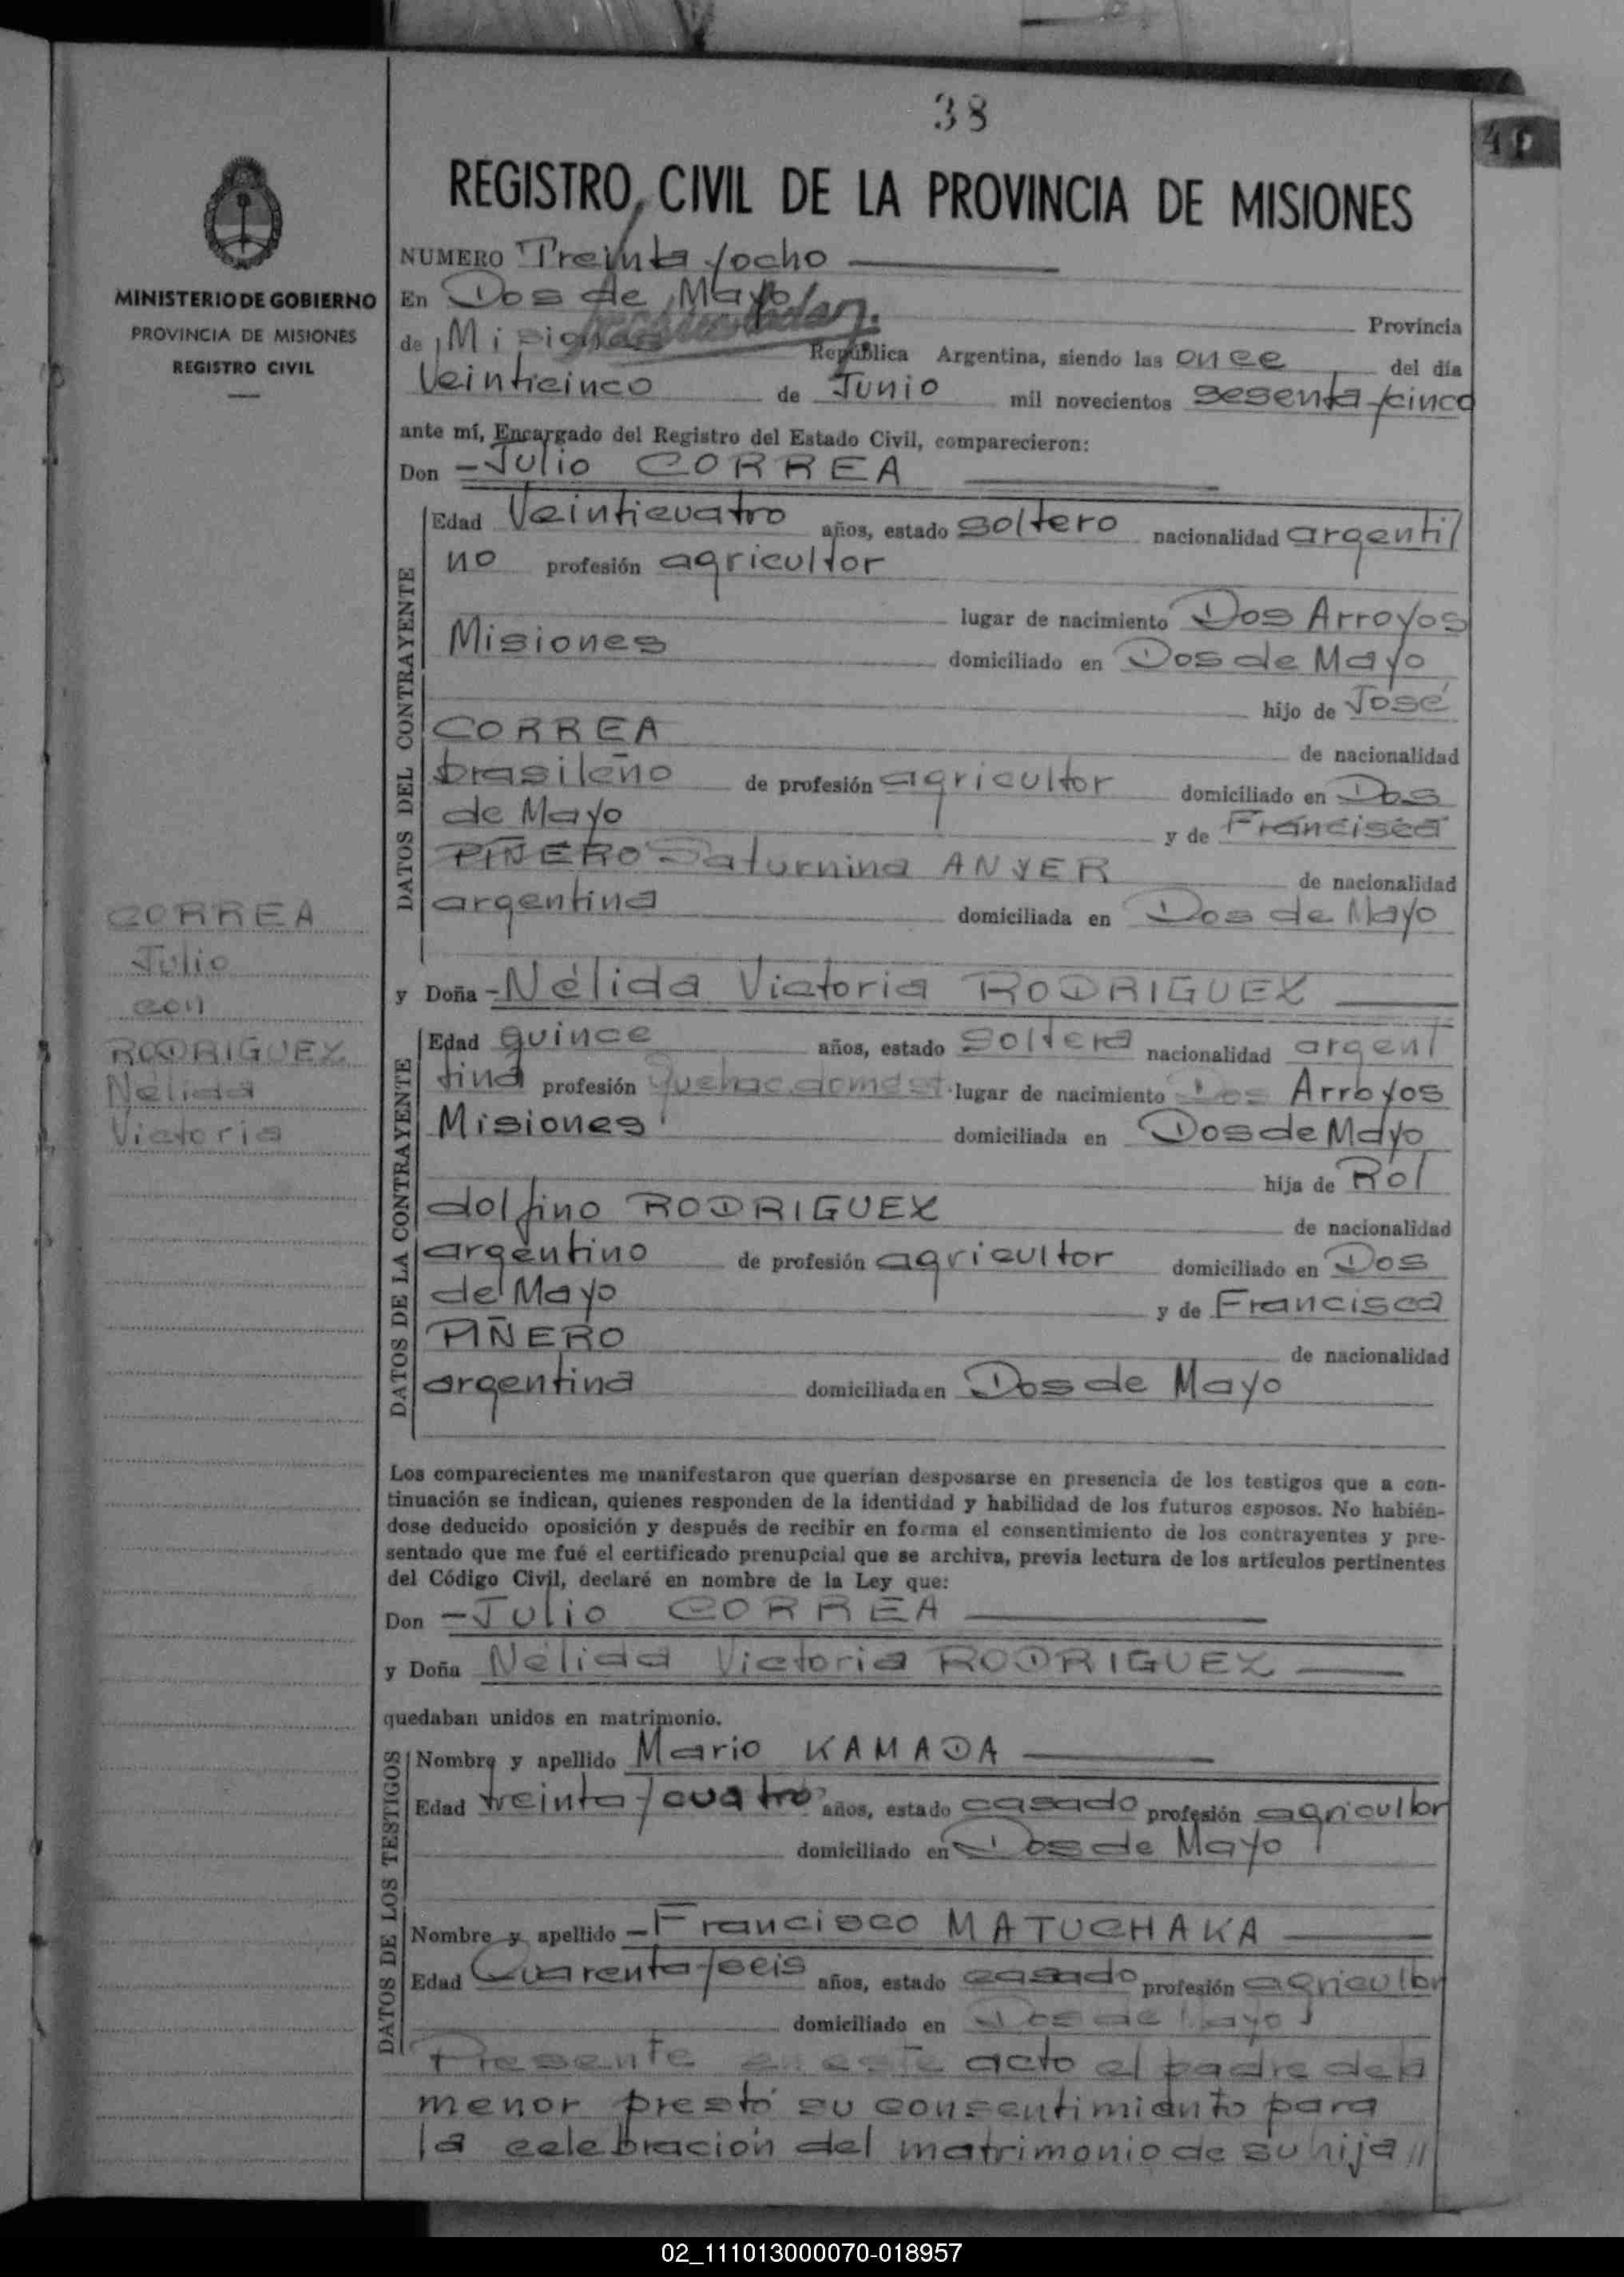 38
40
REGISTRO CIVIL DE LA PROVINCIA DE MISIONES
MINISTERIO DE GOBIERNO
PROVINCIA DE MISIONES
REGISTRO CIVIL
NUMERO Treinta y ocho
En Dos de Mayo Provincia
de Misiones República Argentina, siendo las once del día
Veinticinco de Junio mil novecientos sesenta y cinco
ante mí, Encargado del Registro del Estado Civil, comparecieron:
Don - Julio CORREA
DATOS DEL CONTRAYENTE
Edad Veinticuatro años, estado soltero nacionalidad argenti/
no profesión agricultor
lugar de nacimiento Dos Arroyos
Misiones domiciliado en Dos de Mayo
hijo de José
CORREA de nacionalidad
brasileño de profesión agricultor domiciliado en Dos
de Mayo y de Francisca
PIÑERO Saturnina ANYER de nacionalidad
argentina domiciliada en Dos de Mayo
CORREA
Julio
con
RODRIGUEZ
Nélida
Victoria
y Doña - Nélida Victoria RODRIGUEZ
DATOS DE LA CONTRAYENTE
Edad quince años, estado soltera nacionalidad argen/
tina profesión Quehac. domést. lugar de nacimiento Dos Arroyos
Misiones domiciliada en Dos de Mayo
hija de Ro/
dolfino RODRIGUEZ de nacionalidad
argentino de profesión agricultor domiciliado en Dos
de Mayo y de Francisca
PIÑERO de nacionalidad
argentina domiciliada en Dos de Mayo
Los comparecientes me manifestaron que querían desposarse en presencia de los testigos que a con-
tinuación se indican, quienes responden de la identidad y habilidad de los futuros esposos. No habién-
dose deducido oposición y después de recibir en forma el consentimiento de los contrayentes y pre-
sentado que me fué el certificado prenupcial que se archiva, previa lectura de los artículos pertinentes
del Código Civil, declaré en nombre de la Ley que:
Don - Julio CORREA
y Doña Nélida Victoria RODRIGUEZ
quedaban unidos en matrimonio.
DATOS DE LOS TESTIGOS
Nombre y apellido Mario KAMADA
Edad treinta y cuatro años, estado casado profesión agricultor
domiciliado en Dos de Mayo
Nombre y apellido - Francisco MATUCHAKA
Edad Cuarenta y seis años, estado casado profesión agricultor
domiciliado en Dos de Mayo
Presente en este acto el padre de la
menor prestó su consentimiento para
la celebración del matrimonio de su hija //
02_111013000070-018957